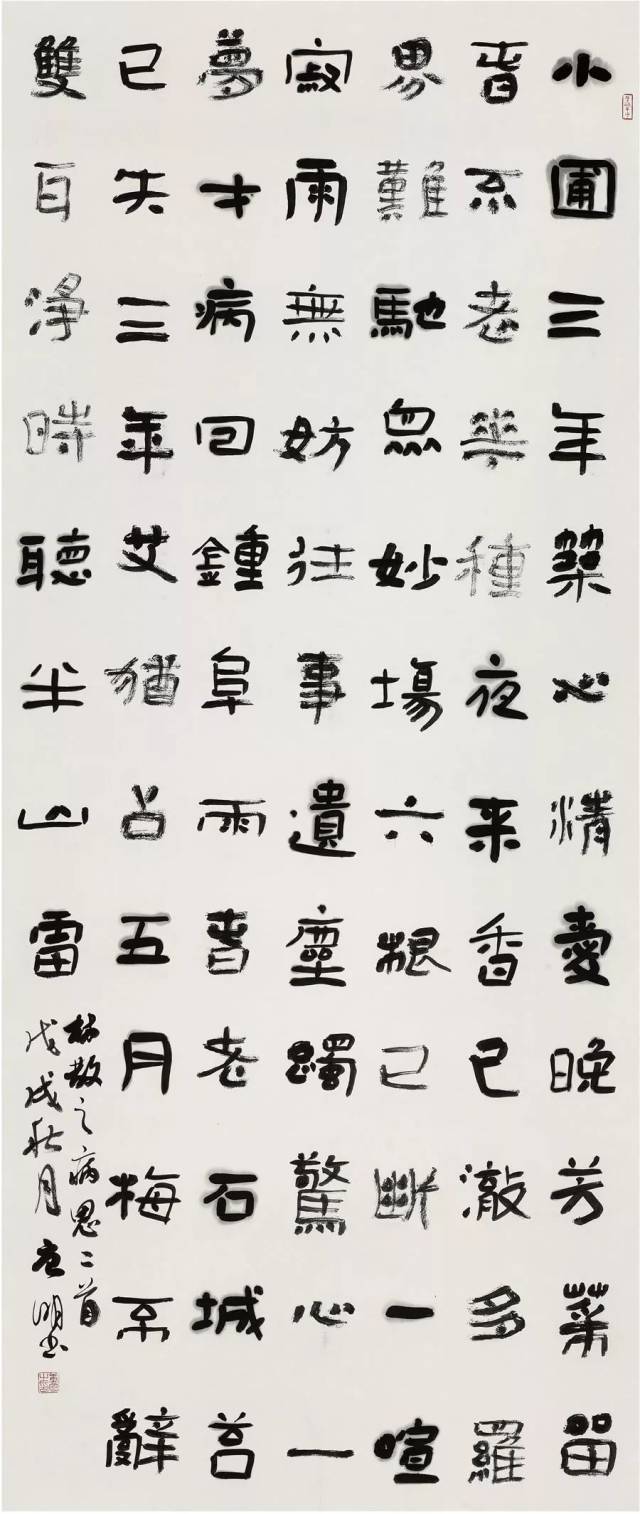 小圃三年築心情愛晚芳菜留
春不老花種夜来香已澈多羅
界難馳眾妙場六根已斷一喧
寂兩無妨往事遺塵躅驚心一
夢才病回鍾阜雨春老石城苔
已失三年艾猶占五月梅不辭
雙耳淨時聽半山雷
林散之病思二首
戊戌秋月